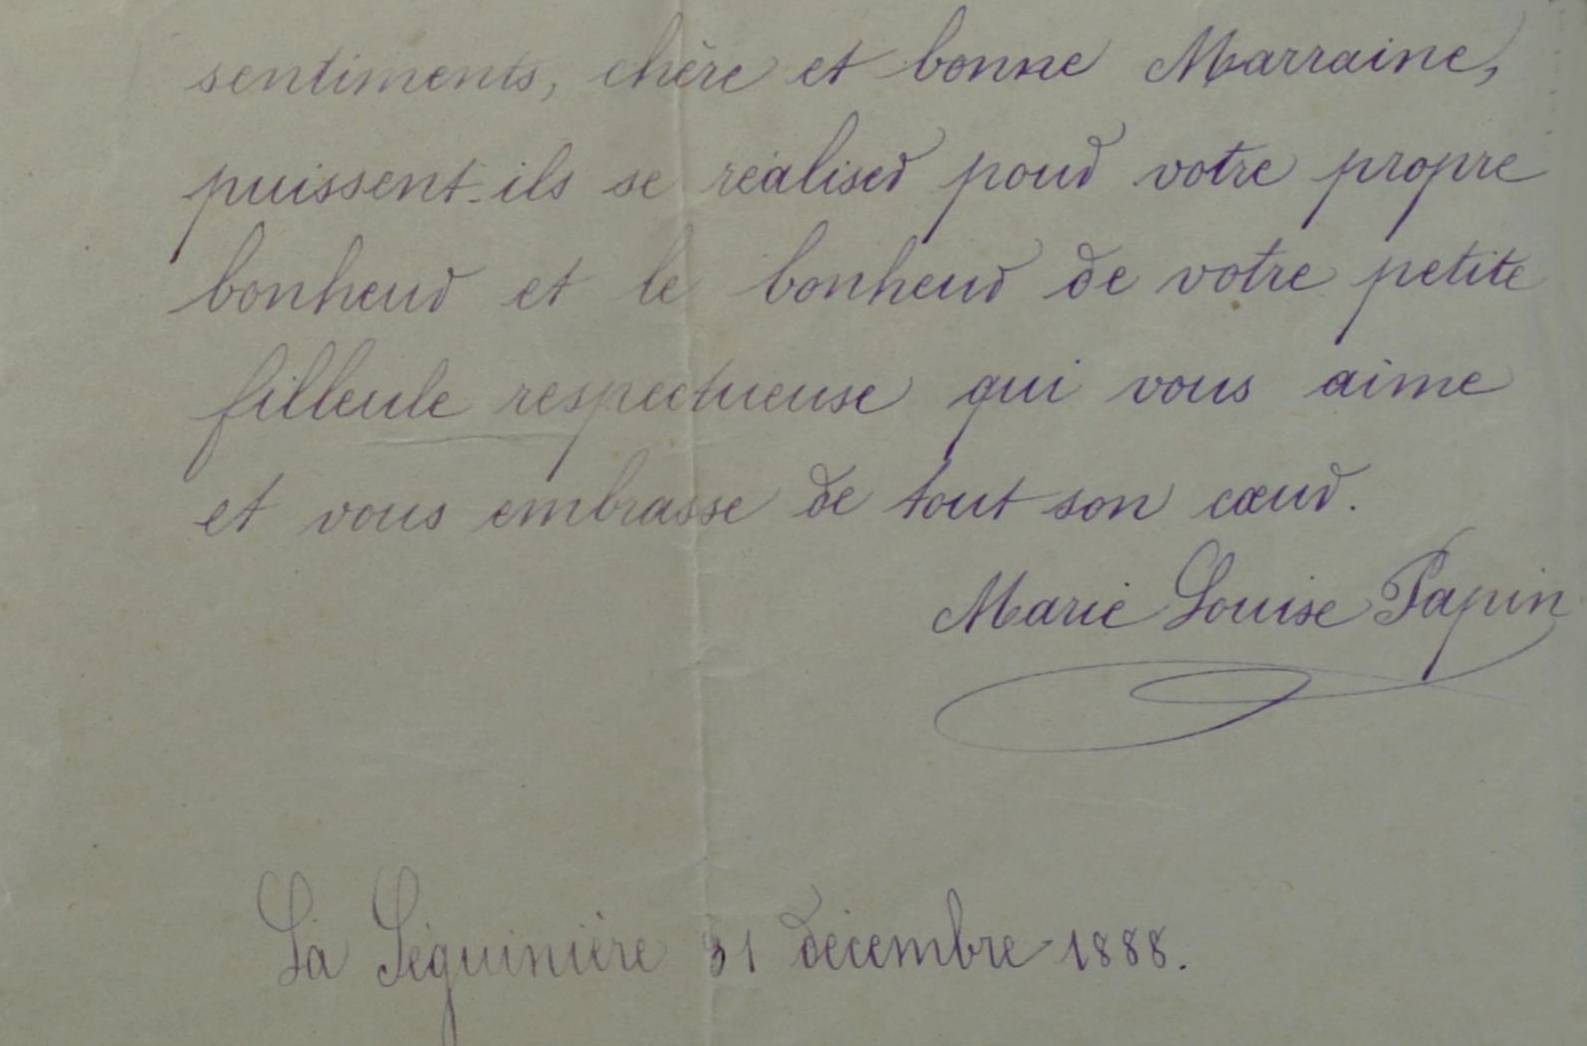 sentiments, chère et bonne Marraine,
puissent-ils se réaliser pour votre propre
bonheur et le bonheur de votre petite
filleule respectueuse qui vous aime
et vous embrasse de tout son cœur.
Marie Louise Papin
La Séguinière 31 décembre 1888.